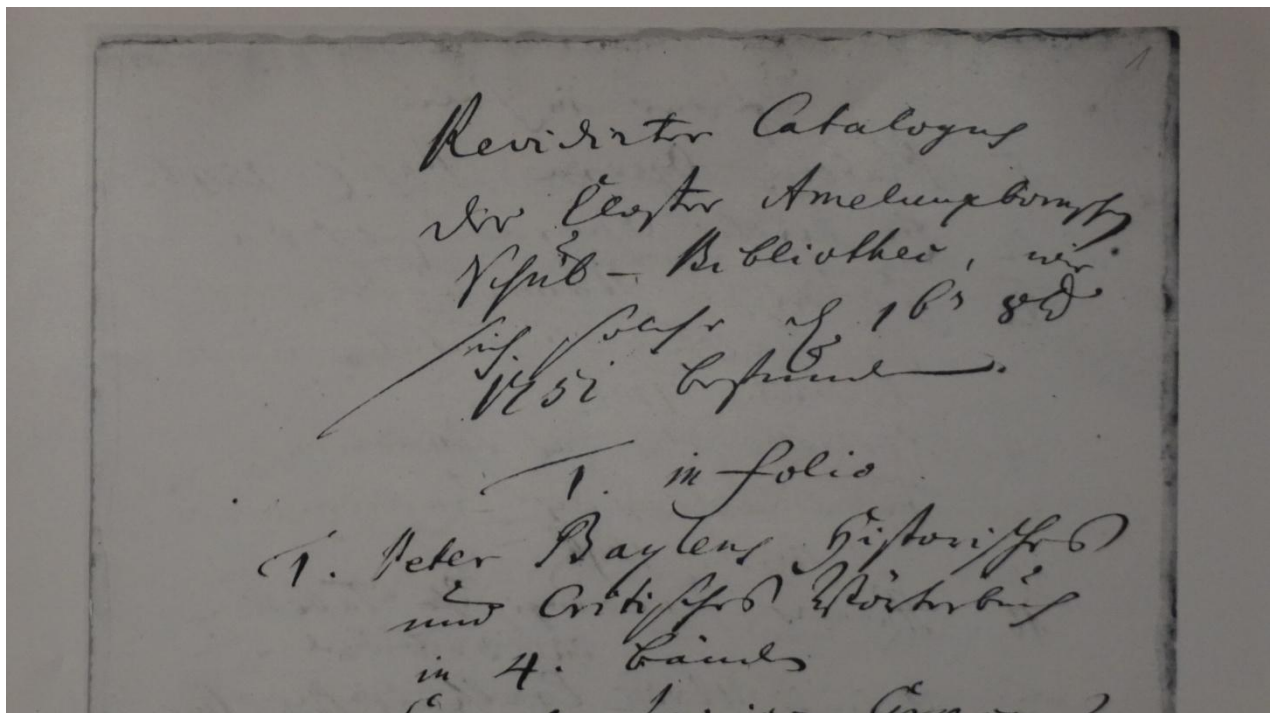 1
Revidirter Catalogus
der Closter Amelunxbornschen
Schul-Bibliothec, wie
sich solche d. 16t 8br
bestund
1. in folio
1. Peter Baylens Historisches
und Critisches Wörterbuch
in 4. Bände